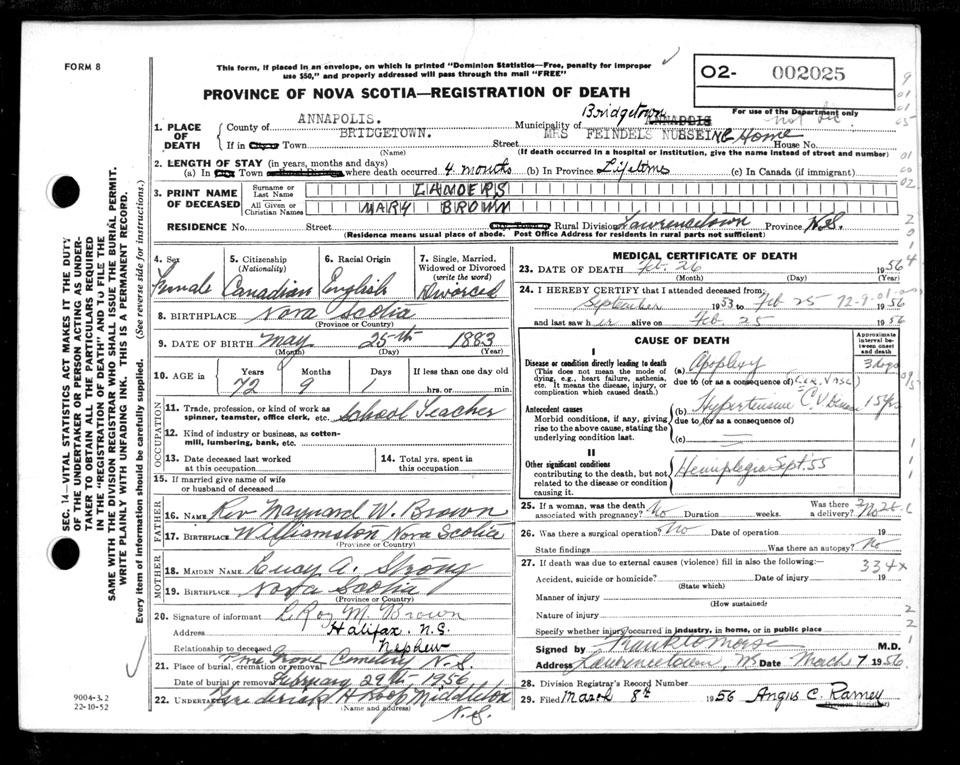 FORM 8
This form, if placed in an envelope, on which is printed "Dominion Statistics—Free, penalty for improper
use $50," and properly addressed will pass through the mail "FREE"
PROVINCE OF NOVA SCOTIA—REGISTRATION OF DEATH
O2- 002025
For use of the Department only
1. PLACE OF DEATH
County of ANNAPOLIS. Municipality of Bridgetown ANNAPOLIS
If in City or Town BRIDGETOWN. Street MRS FEINDELS NURSEING Home House No.
(Name) (If death occurred in a hospital or institution, give the name instead of street and number)
2. LENGTH OF STAY (in years, months and days)
(a) In City Town or Rural Division where death occurred 4 months (b) In Province Lifetime (c) In Canada (if immigrant)
3. PRINT NAME OF DECEASED
Surname or Last Name LANDERS
All Given or Christian Names MARY BROWN
RESIDENCE No. Street City Town or Rural Division Lawrencetown Province N.S.
(Residence means usual place of abode. Post Office Address for residents in rural parts not sufficient)
SEC. 14—VITAL STATISTICS ACT MAKES IT THE DUTY
OF THE UNDERTAKER OR PERSON ACTING AS UNDER-
TAKER TO OBTAIN ALL THE PARTICULARS REQUIRED
IN THE "REGISTRATION OF DEATH" AND TO FILE THE
SAME WITH THE DIVISION REGISTRAR WHO SHALL ISSUE THE BURIAL PERMIT.
WRITE PLAINLY WITH UNFADING INK. THIS IS A PERMANENT RECORD.
Every item of information should be carefully supplied. (See reverse side for instructions.)
4. Sex Female
5. Citizenship (Nationality) Canadian
6. Racial Origin English
7. Single, Married, Widowed or Divorced (write the word) Divorced
8. BIRTHPLACE Nova Scotia
(Province or Country)
9. DATE OF BIRTH May 25th 1883
(Month) (Day) (Year)
10. AGE in Years 72 Months 9 Days 1 If less than one day old
hrs. or min.
OCCUPATION
11. Trade, profession, or kind of work as
spinner, teamster, office clerk, etc. School Teacher
12. Kind of industry or business, as cotton-
mill, lumbering, bank, etc.
13. Date deceased last worked
at this occupation
14. Total yrs. spent in
this occupation
15. If married give name of wife
or husband of deceased
FATHER
16. NAME Rev Maynard W. Brown
17. BIRTHPLACE Williamston Nova Scotia
(Province or Country)
MOTHER
18. MAIDEN NAME Lucy A. Strong
19. BIRTHPLACE Nova Scotia
(Province or Country)
20. Signature of informant LeRoy M. Brown
Address Halifax. N.S.
Relationship to deceased Nephew
21. Place of burial, cremation or removal Pine Grove Cemetery N.S.
Date of burial or removal February 29th 1956
22. UNDERTAKER Frederick H Roop Middleton
(Name and address) N.S.
9004-3.2
22-10-52
MEDICAL CERTIFICATE OF DEATH
23. DATE OF DEATH Feb. 26 1956
(Month) (Day) (Year)
24. I HEREBY CERTIFY that I attended deceased from:
September 1953 to Feb 25 1956
and last saw her alive on Feb. 25 1956
CAUSE OF DEATH
Approximate interval between onset and death
I
Disease or condition directly leading to death
(This does not mean the mode of
dying, e.g., heart failure, asthenia,
etc. It means the disease, injury, or
complication which caused death.)
(a) Apoplexy 3 days
due to (or as a consequence of)
Antecedent causes
Morbid conditions, if any, giving
rise to the above cause, stating the
underlying condition last.
(b) Hypertensive C.V. Disease 15 yrs
due to (or as a consequence of)
(c)
II
Other significant conditions
contributing to the death, but not
related to the disease or condition
causing it.
Hemiplegia Sept '55
25. If a woman, was the death
associated with pregnancy? No Duration weeks. Was there a delivery? No
26. Was there a surgical operation? No Date of operation 19
State findings Was there an autopsy? No
27. If death was due to external causes (violence) fill in also the following:—
334x
Accident, suicide or homicide? Date of injury 19
(State which)
Manner of injury
(How sustained)
Nature of injury
Specify whether injury occurred in industry, in home, or in public place
Signed by Frank Morse M.D.
Address Lawrencetown, NS Date March 7 1956
28. Division Registrar's Record Number
29. Filed March 8th 1956 Angus C. Ramey
(Division Registrar)